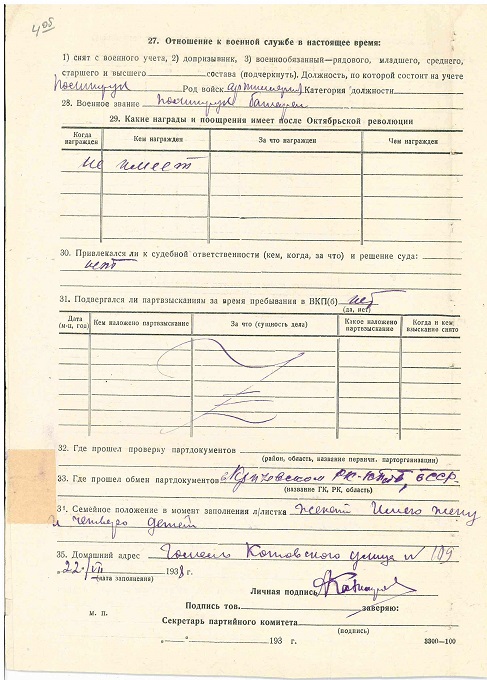 405
27. Отношение к военной службе в настоящее время:
1) снят с военного учета, 2) допризывник, 3) военнообязанный—рядового, младшего, среднего,
старшего и высшего состава (подчеркнуть). Должность, по которой состоит на учете
Политрук Род войск артиллерия Категория должности
28. Военное звание политрук батареи
29. Какие награды и поощрения имеет после Октябрьской революции
Когда награжден Кем награжден За что награжден Чем награжден
не имеет
30. Привлекался ли к судебной ответственности (кем, когда, за что) и решение суда:
нет
31. Подвергался ли партвзысканиям за время пребывания в ВКП(б) нет
(да, нет)
Дата (м-ц, год) Кем наложено партвзыскание За что (сущность дела) Какое наложено партвзыскание Когда и кем взыскание снято
32. Где прошел проверку партдокументов
(район, область, название первичн. парторганизации)
33. Где прошел обмен партдокументов в Кричевском РК КП(б)Б, БССР
(название ГК, РК, область)
34. Семейное положение в момент заполнения л/листка женат имею жену
и четверо детей
35. Домашний адрес Гомель Котовского улица № 109
„22“ VII 1938 г.
(дата заполнения)
Личная подпись
Подпись тов. заверяю:
м. п. Секретарь партийного комитета
(подпись)
„ “ 193 г.
3300—100